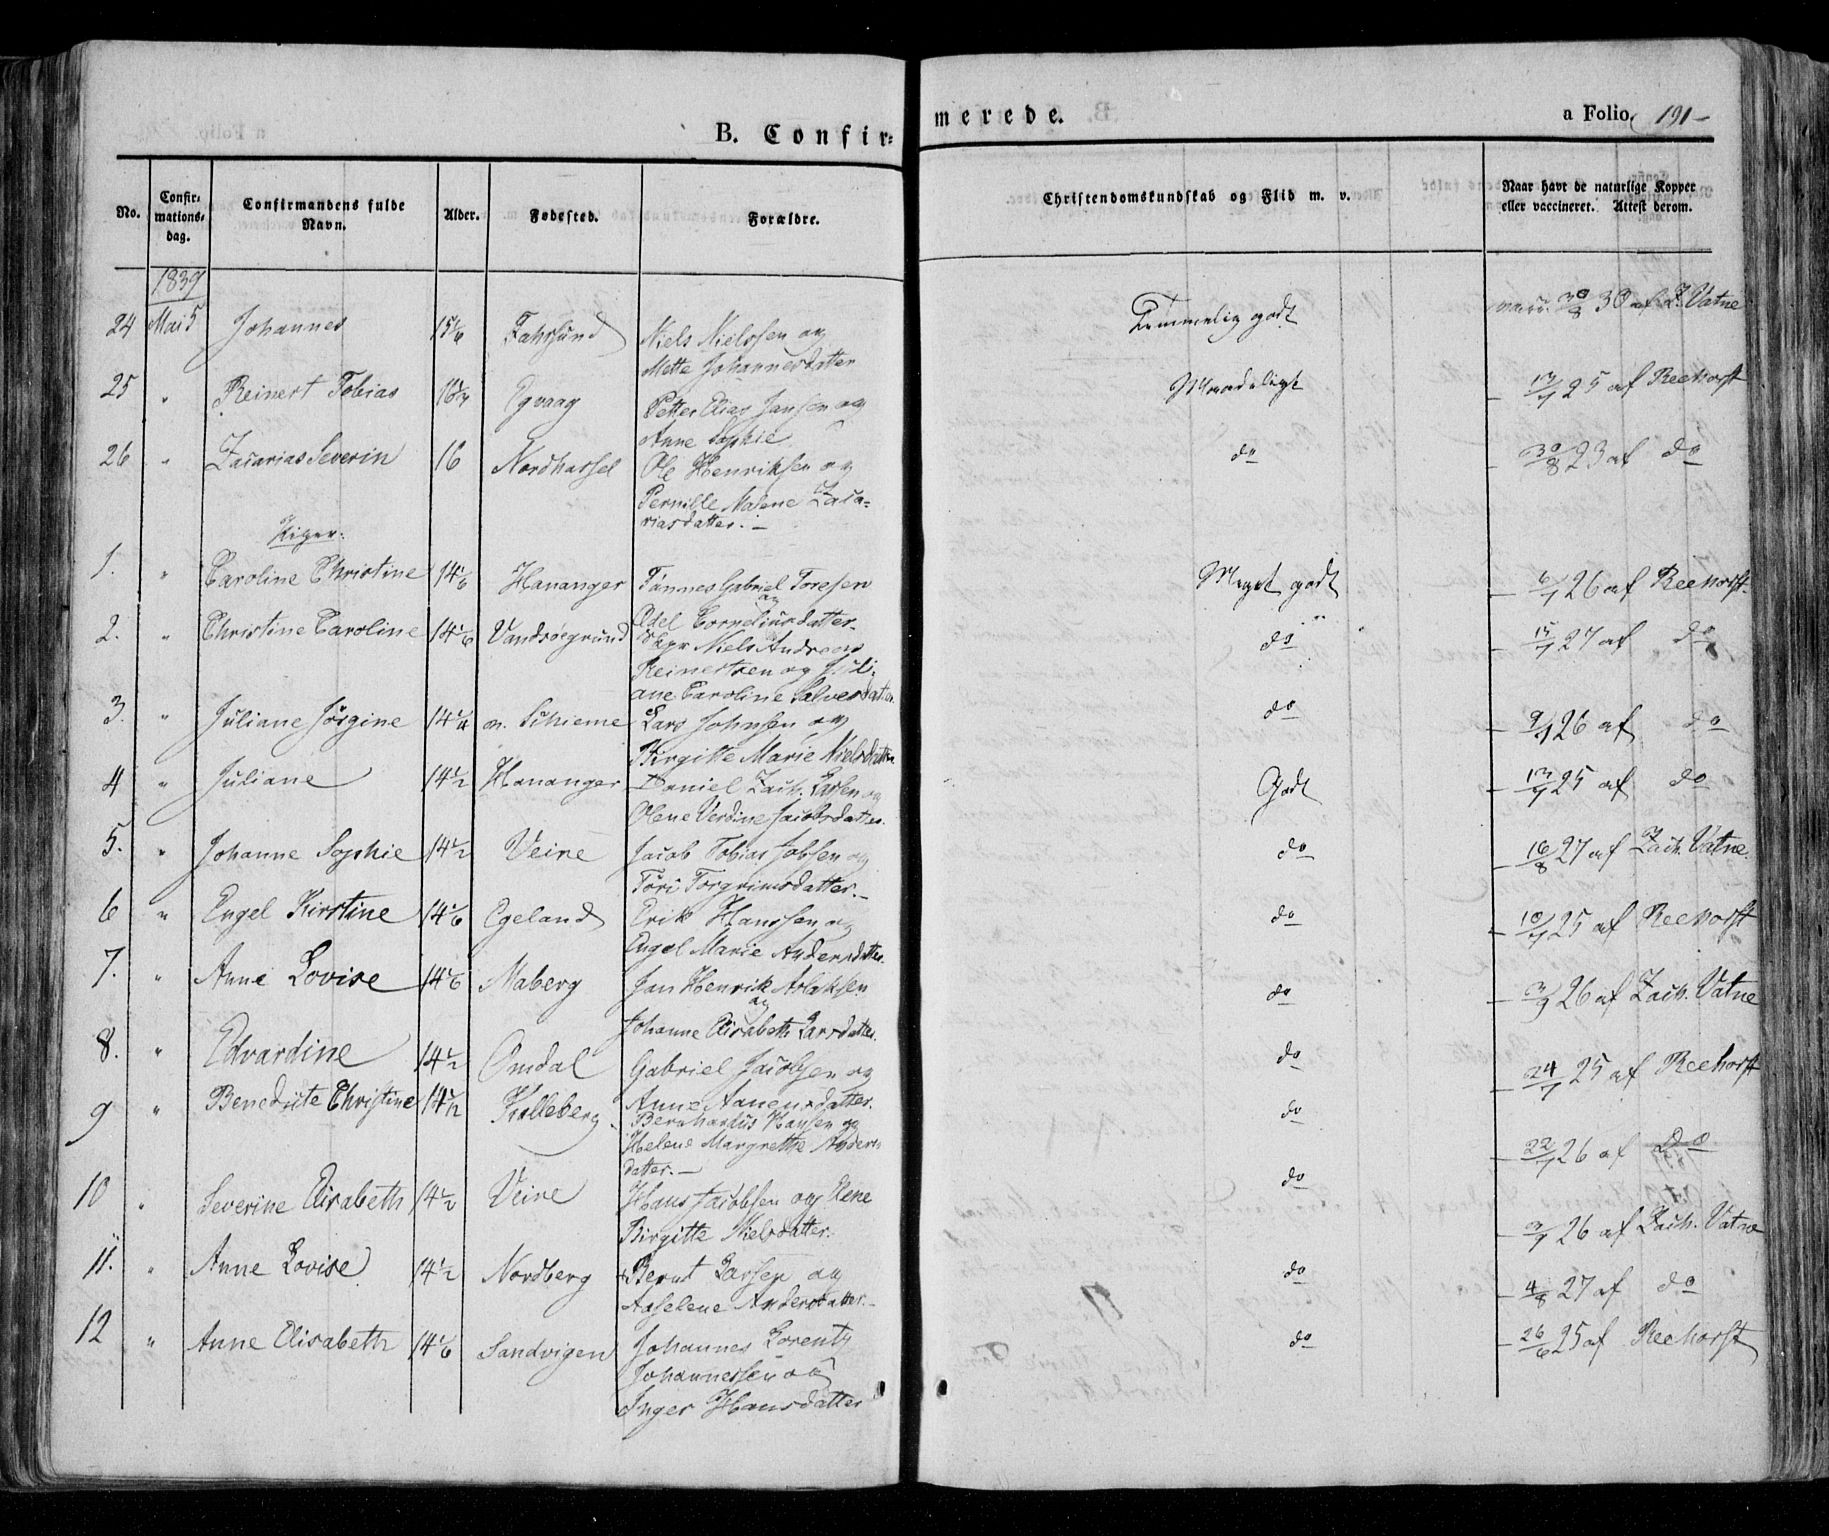 B. Confir=
merede.
a Folio 191-
No.
Confir-
mations-
dag.
Confirmandens fulde
Navn.
Alder.
Fødested.
Forældre.
Christendomskundskab og Flid m. v.
Naar havt de naturlige Kopper
eller vaccineret. Attest derom.
1839
24 Mai 5 Johannes 15 1/6 Fahrsund Niels Nielssen og Temmelig godt vacc. 30/8 30 af Z. Vatne
Mette Johannesdatter
25 " Reinert Tobias Egvaag Petter Elias Jansen og Maadeligt 13/7 25 af Reehorst
Anne Sophie
26 " Zacarias Severin 16 Nordhassel Ole Henriksen og do 30/8 23 af do
Pernille Malene Zaca-
riasdatter.-
Piger:
1. " Caroline Christine 14 1/6 Hananger Tønnes Gabriel Toresen Meget godt 6/7 26 af Reehorst
og
Adel Corneliusdatter.
2. " Christine Caroline 14 1/6 Vandsøegrund Skpr Niels Andreas do 15/7 27 af do
Reinertsen og Juli-
ane Caroline Salvesdatter
3. " Juliane Jørgine 14 1/4 m. Schieme Lars Johnsen og do 9/7 26 af do
Birgitte Marie Nielsdatter
4 " Juliane 14 1/2 Hananger Daniel Zach. Larsen og Godt 13/7 25 af do
Olene Verdine Jacobsdatter
5. " Johanne Sophie 14 1/2 Veine Jacob Tobias Jobsen og do 16/8 27 af Zach. Vatne
Tori Torgrimsdatter.-
6 " Engel Kirstine 14 1/6 Egeland Erik Hanssen og do 10/7 25 af Reehorst
Engel Marie Andersdatter.
7. " Anne Lovise 14 1/6 Maberg Jan Henrik Aslaksen do 26 af Zach. Vatne
og
Johanne Elisabeth Larsdatter.
8. " Edvardine 14 1/2 Omdal Gabriel Jacobsen og do 24/7 25 af Reehorst
Anne Aanensdatter.
9 " Benedicte Christine 14 1/2 Kolleberg Bernhardus Hansen og do 22/7 26 af do
Helene Margrethe Anders
datter.-
10 " Severine Elisabeth 14 1/2 Veine Hans Jacobsen og Elene do 26 af Zach. Vatne
Birgitte Nielsdatter.
11. " Anne Lovise 14 1/2 Nordberg Bernt Larsen og do 4/8 27 af do
Aaselene Andersdatter.-
12 " Anne Elisabeth 14 1/6 Sandvigen Johannes Lorentz do 26/6 25 af Reehorst
Johannessen og
Inger Hansdatter